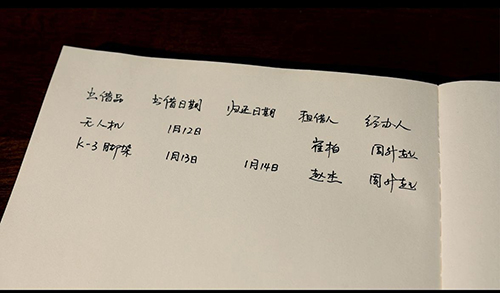 出借品 出借日期 归还日期 租借人 经办人
无人机 1月12日 崔柏 周升起
K-3脚架 1月13日 1月14日 赵杰 周升起